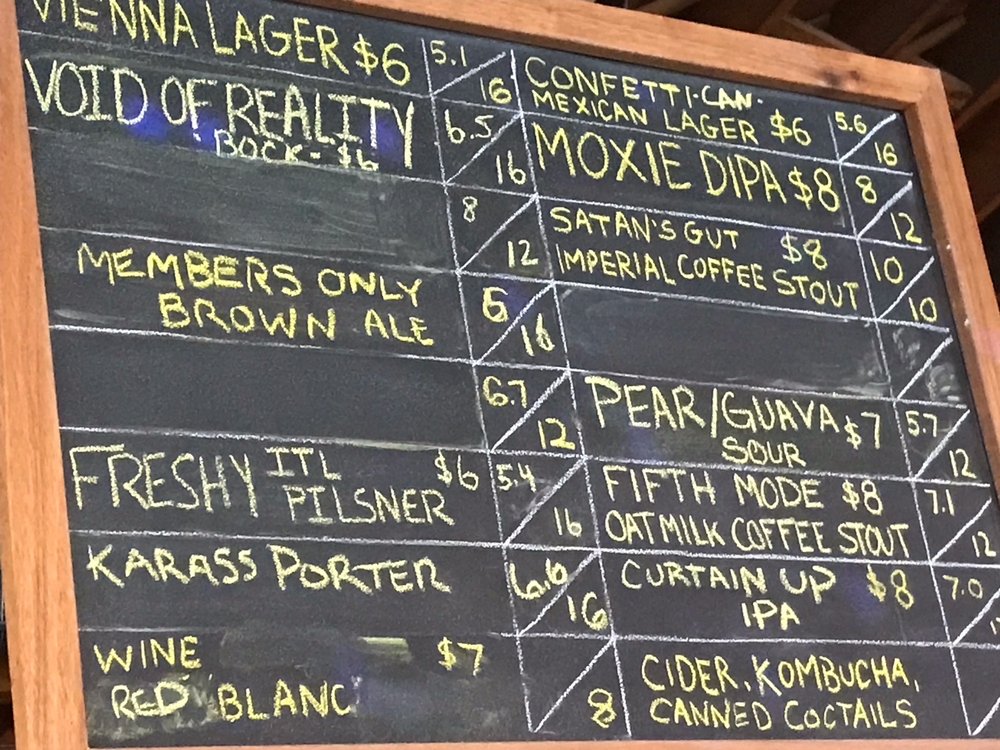 VIENNA LAGER $6 5.1/16
VOID OF REALITY 6.5/16
BOCK - $6
8/12
MEMBERS ONLY
BROWN ALE 6/16
6.7/12
FRESHY ITL $6 5.4/16
PILSNER
KARASS PORTER 6.6/16
WINE $7
RED BLANC 8
CONFETTI-CAN-
MEXICAN LAGER $6 5.6/16
MOXIE DIPA $8 8/12
SATAN'S GUT $8
IMPERIAL COFFEE STOUT 10/10
PEAR/GUAVA $7 5.7/12
SOUR
FIFTH MODE $8 7.1/12
OATMILK COFFEE STOUT
CURTAIN UP $8 7.0
IPA
CIDER, KOMBUCHA,
CANNED COCTAILS